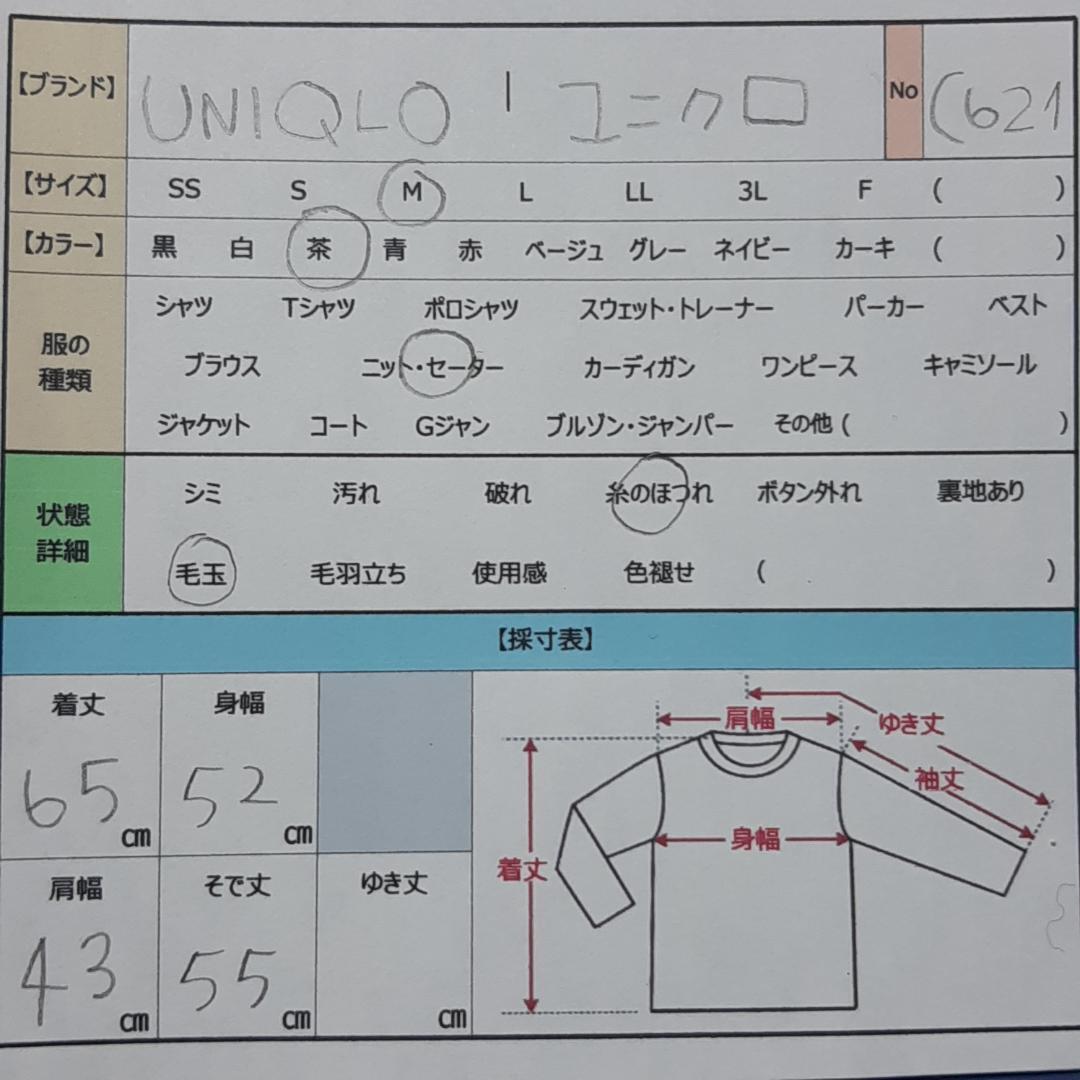 【ブランド】 UNIQLO | ユニクロ No (621
【サイズ】 SS S M L LL 3L F ( )
【カラー】 黒 白 茶 青 赤 ベージュ グレー ネイビー カーキ ( )
服の種類
シャツ Tシャツ ポロシャツ スウェット・トレーナー パーカー ベスト
ブラウス ニット・セーター カーディガン ワンピース キャミソール
ジャケット コート Gジャン ブルゾン・ジャンパー その他 ( )
状態詳細
シミ 汚れ 破れ 糸のほつれ ボタン外れ 裏地あり
毛玉 毛羽立ち 使用感 色褪せ ( )
【採寸表】
着丈 身幅
65cm 52cm
肩幅 そで丈 ゆき丈
43cm 55cm cm
肩幅
ゆき丈
袖丈
身幅
着丈